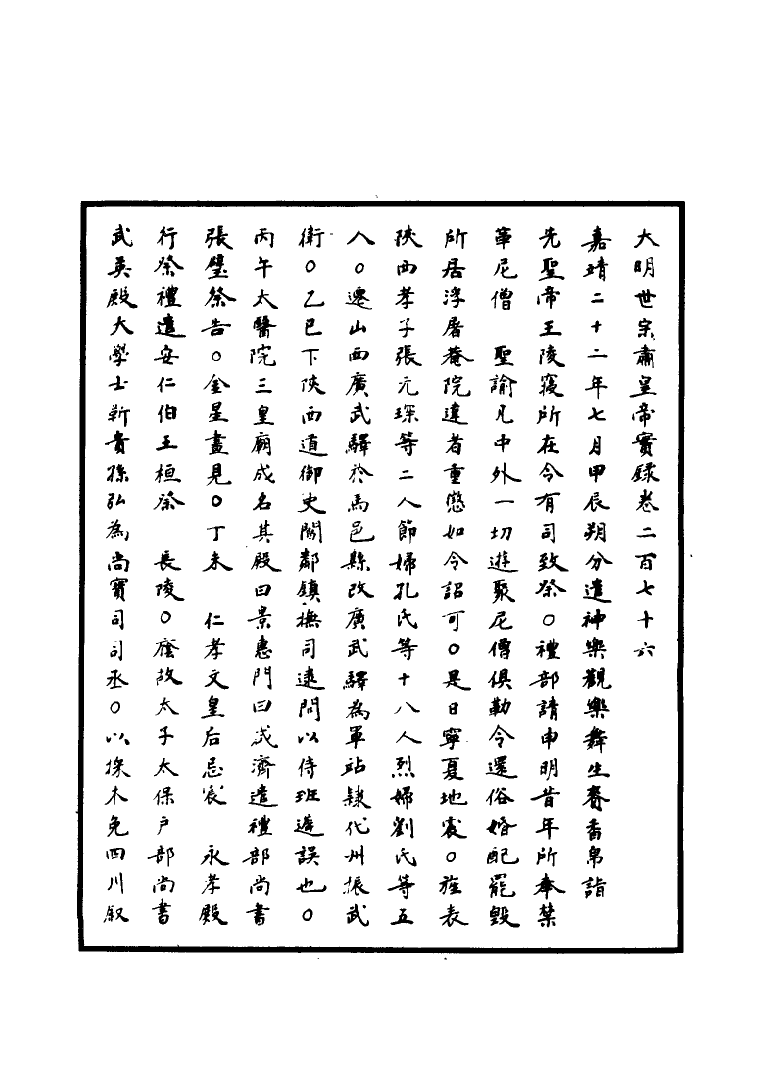 大明世宗肅皇帝實錄卷二百七十六
嘉靖二十二年七月甲辰朔分遣神樂觀樂舞生賫香帛詣
先聖帝王陵寢所在令有司致祭○禮部請申明昔年所奉禁
革尼僧　聖諭凡中外一切遊聚尼僧俱勒令還俗婚配罷毀
所居浮屠菴院違者重懲如令詔可○是日寧夏地震○旌表
陝西孝子張元琛等二人節婦孔氏等十八人烈婦劉氏等五
人○遷山西廣武驛於馬邑縣改廣武驛為軍站隸代州振武
衛○乙巳下陝西道御史閻鄰鎮撫司逮問以侍班遲誤也○
丙午太醫院三皇廟成名其殿曰景惠門曰咸濟遣禮部尚書
張璧祭告○金星晝見○丁未　仁孝文皇后忌宸　永孝殿
行祭禮遣安仁伯王桓祭　長陵○廕故太子太保戶部尚書
武英殿大學士靳貴孫弘為尚寶司司丞○以採木免四川敘